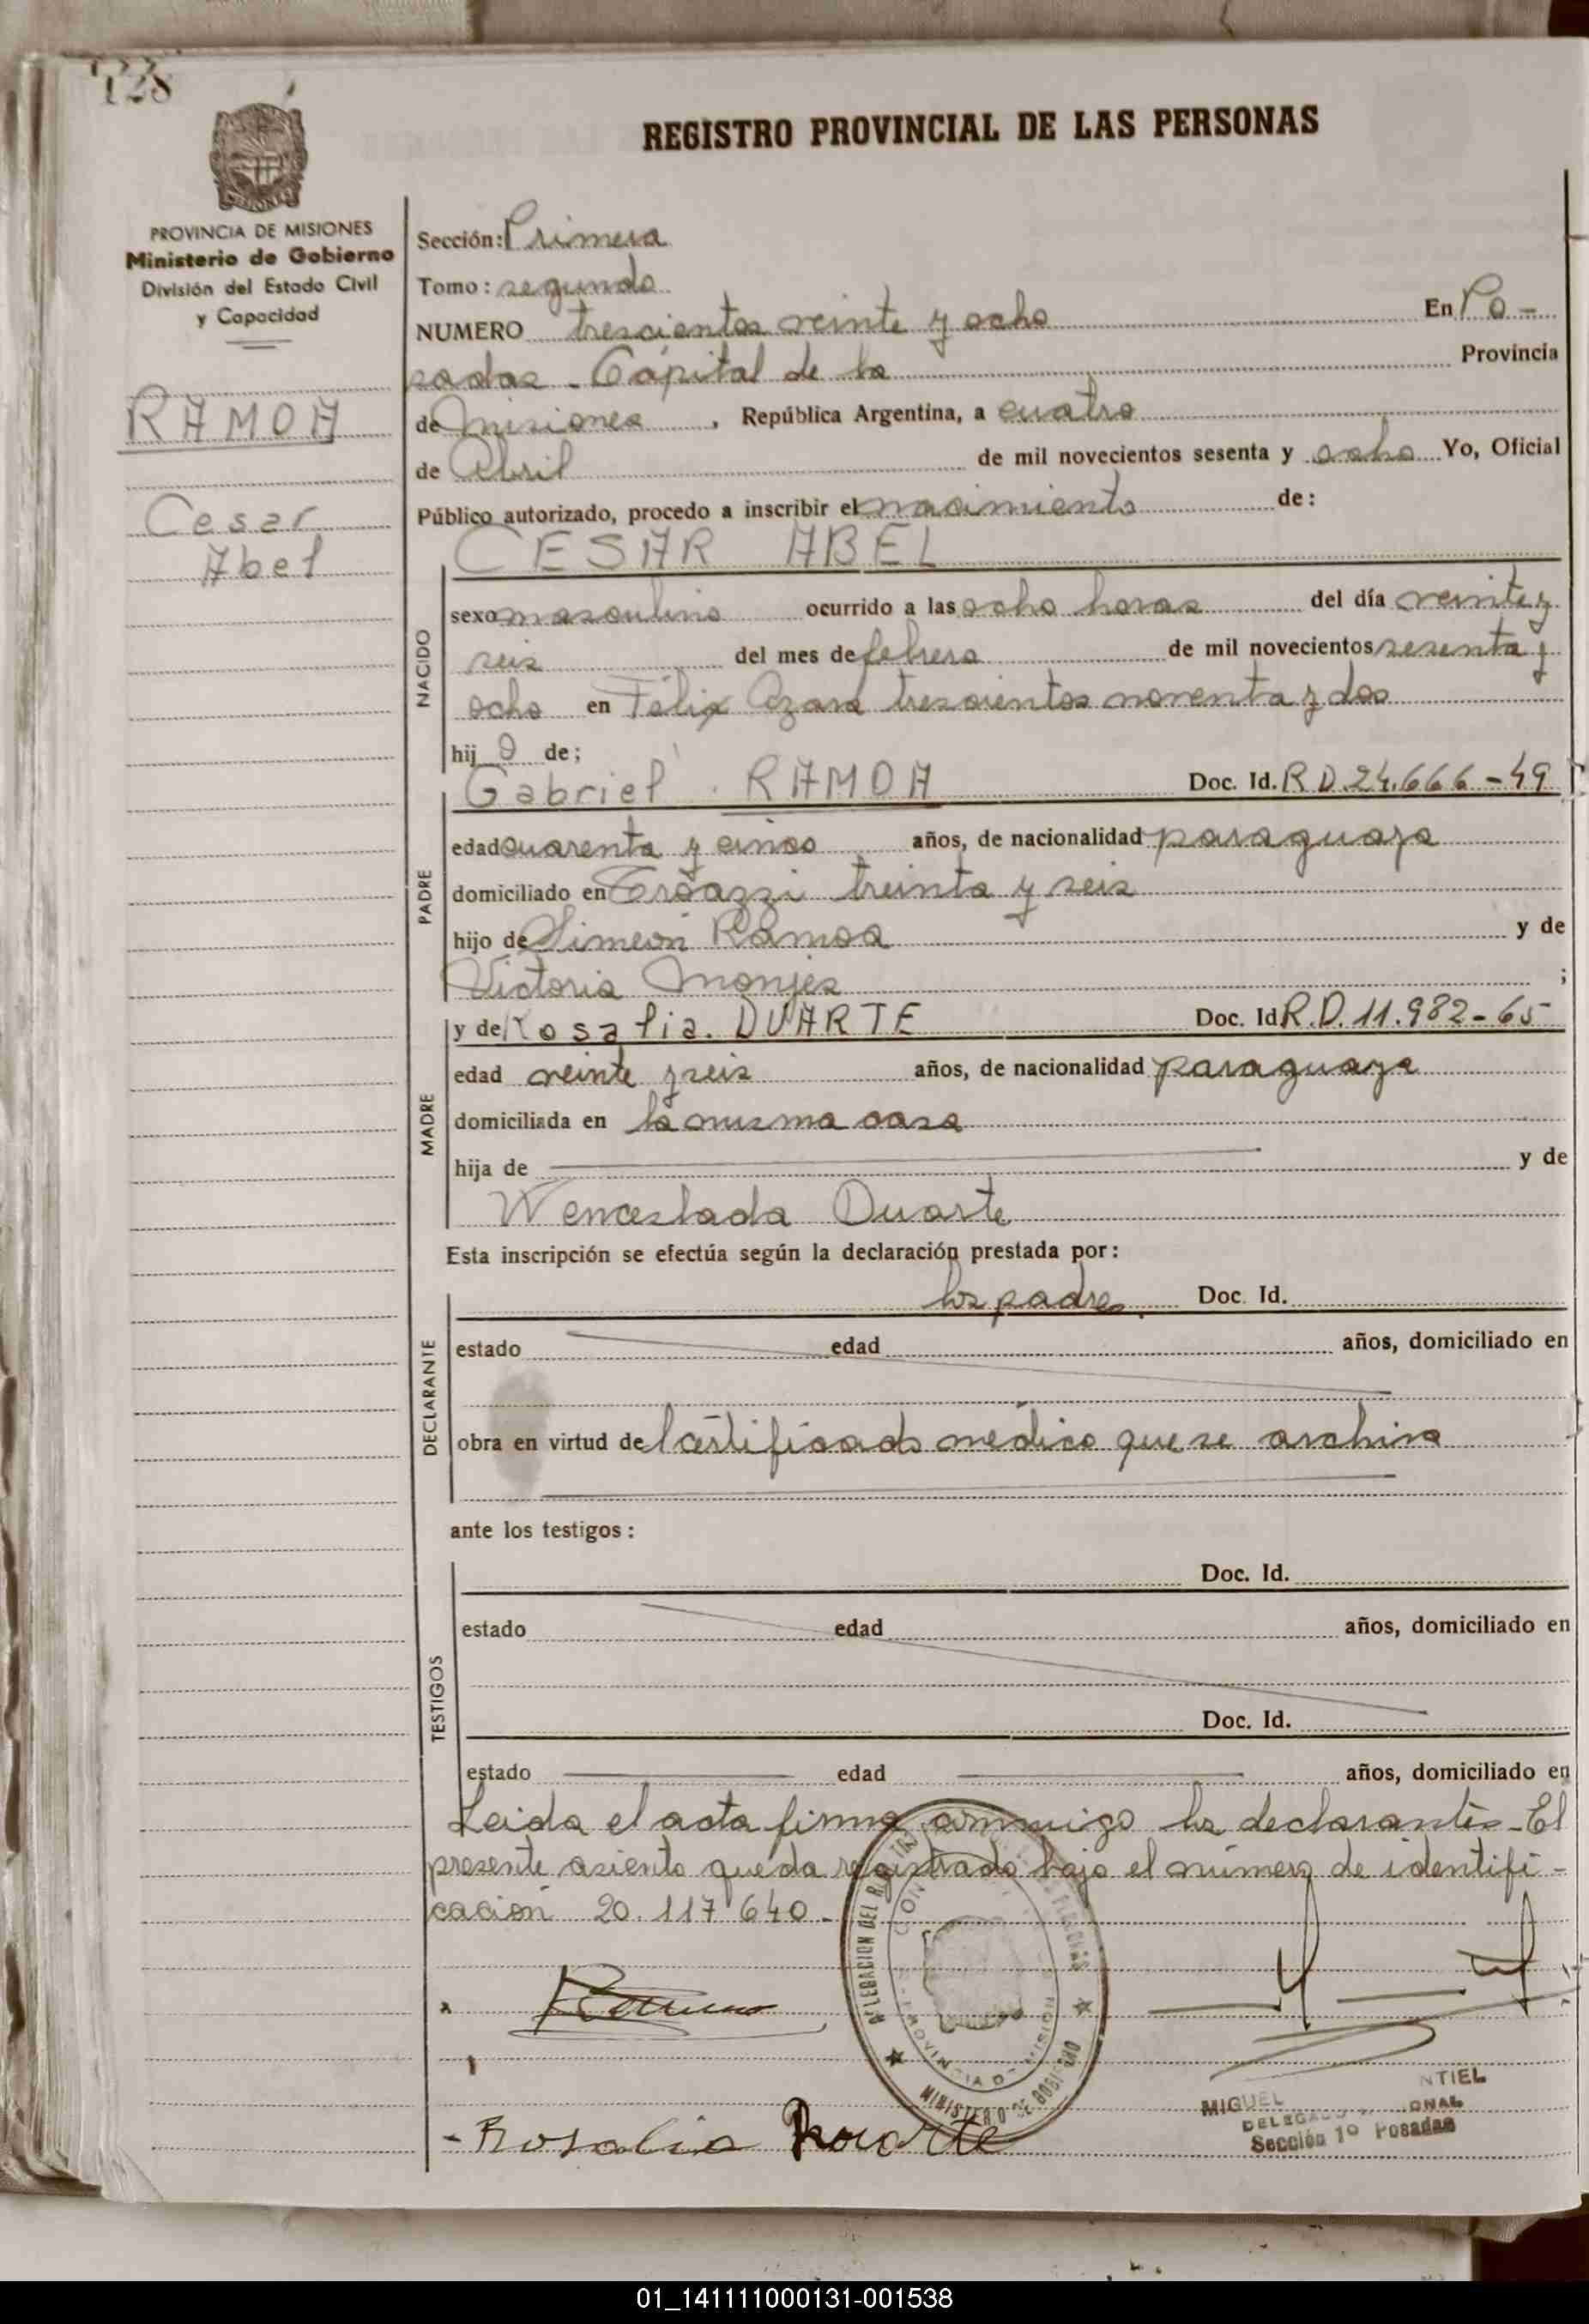 128
REGISTRO PROVINCIAL DE LAS PERSONAS
PROVINCIA DE MISIONES
Ministerio de Gobierno
División del Estado Civil
y Capacidad
RAMOA
Cesar
Abel
Sección: Primera
Tomo: segundo
NUMERO trescientos veinte y ocho En Po-
sadas - Capital de la Provincia
de Misiones, República Argentina, a cuatro
de Abril de mil novecientos sesenta y ocho Yo, Oficial
Público autorizado, procedo a inscribir el nacimiento de:
CESAR ABEL
NACIDO
sexo masculino ocurrido a las ocho horas del día veinte y
seis del mes de febrero de mil novecientos sesenta y
ocho en Félix Azara trescientos noventa y dos
hijo de;
PADRE
Gabriel RAMOA Doc. Id. R.D.24.666-49
edad cuarenta y cinco años, de nacionalidad paraguaya
domiciliado en treinta y seis
hijo de Simeón Ramoa y de
Victoria Monjes ;
MADRE
y de Rosalia DUARTE Doc. Id R.D.11.982-65
edad veinte y seis años, de nacionalidad paraguaya
domiciliada en la misma casa
hija de y de
Wenceslada Duarte
Esta inscripción se efectúa según la declaración prestada por:
DECLARANTE
los padres. Doc. Id.
estado edad años, domiciliado en
obra en virtud del certificado médico que se archiva
ante los testigos:
TESTIGOS
Doc. Id.
estado edad años, domiciliado en
Doc. Id.
estado edad años, domiciliado en
Leida el acta firma conmigo los declarantes - El
presente asiento queda registrado bajo el número de identifi-
cación 20.117.640.-
MINISTERIO DE GOBIERNO
- Rosalia Duarte
MIGUEL NTIEL
Sección 1º Posadas
01_141111000131-001538